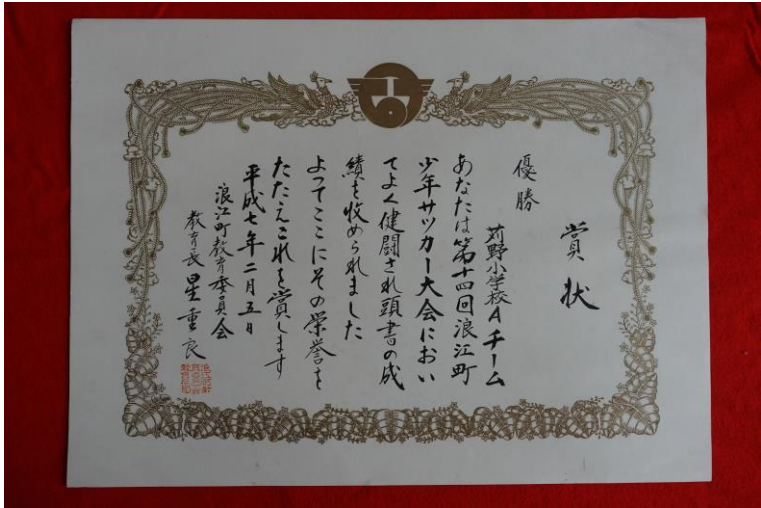 賞状
優勝
苅野小学校Aチーム
あなたは第十四回浪江町
少年サッカー大会におい
てよく健闘され頭書の成
績を收められました
よってここにその栄誉を
たたえこれを賞します
平成七年二月五日
浪江町教育委員会
教育長 星重良